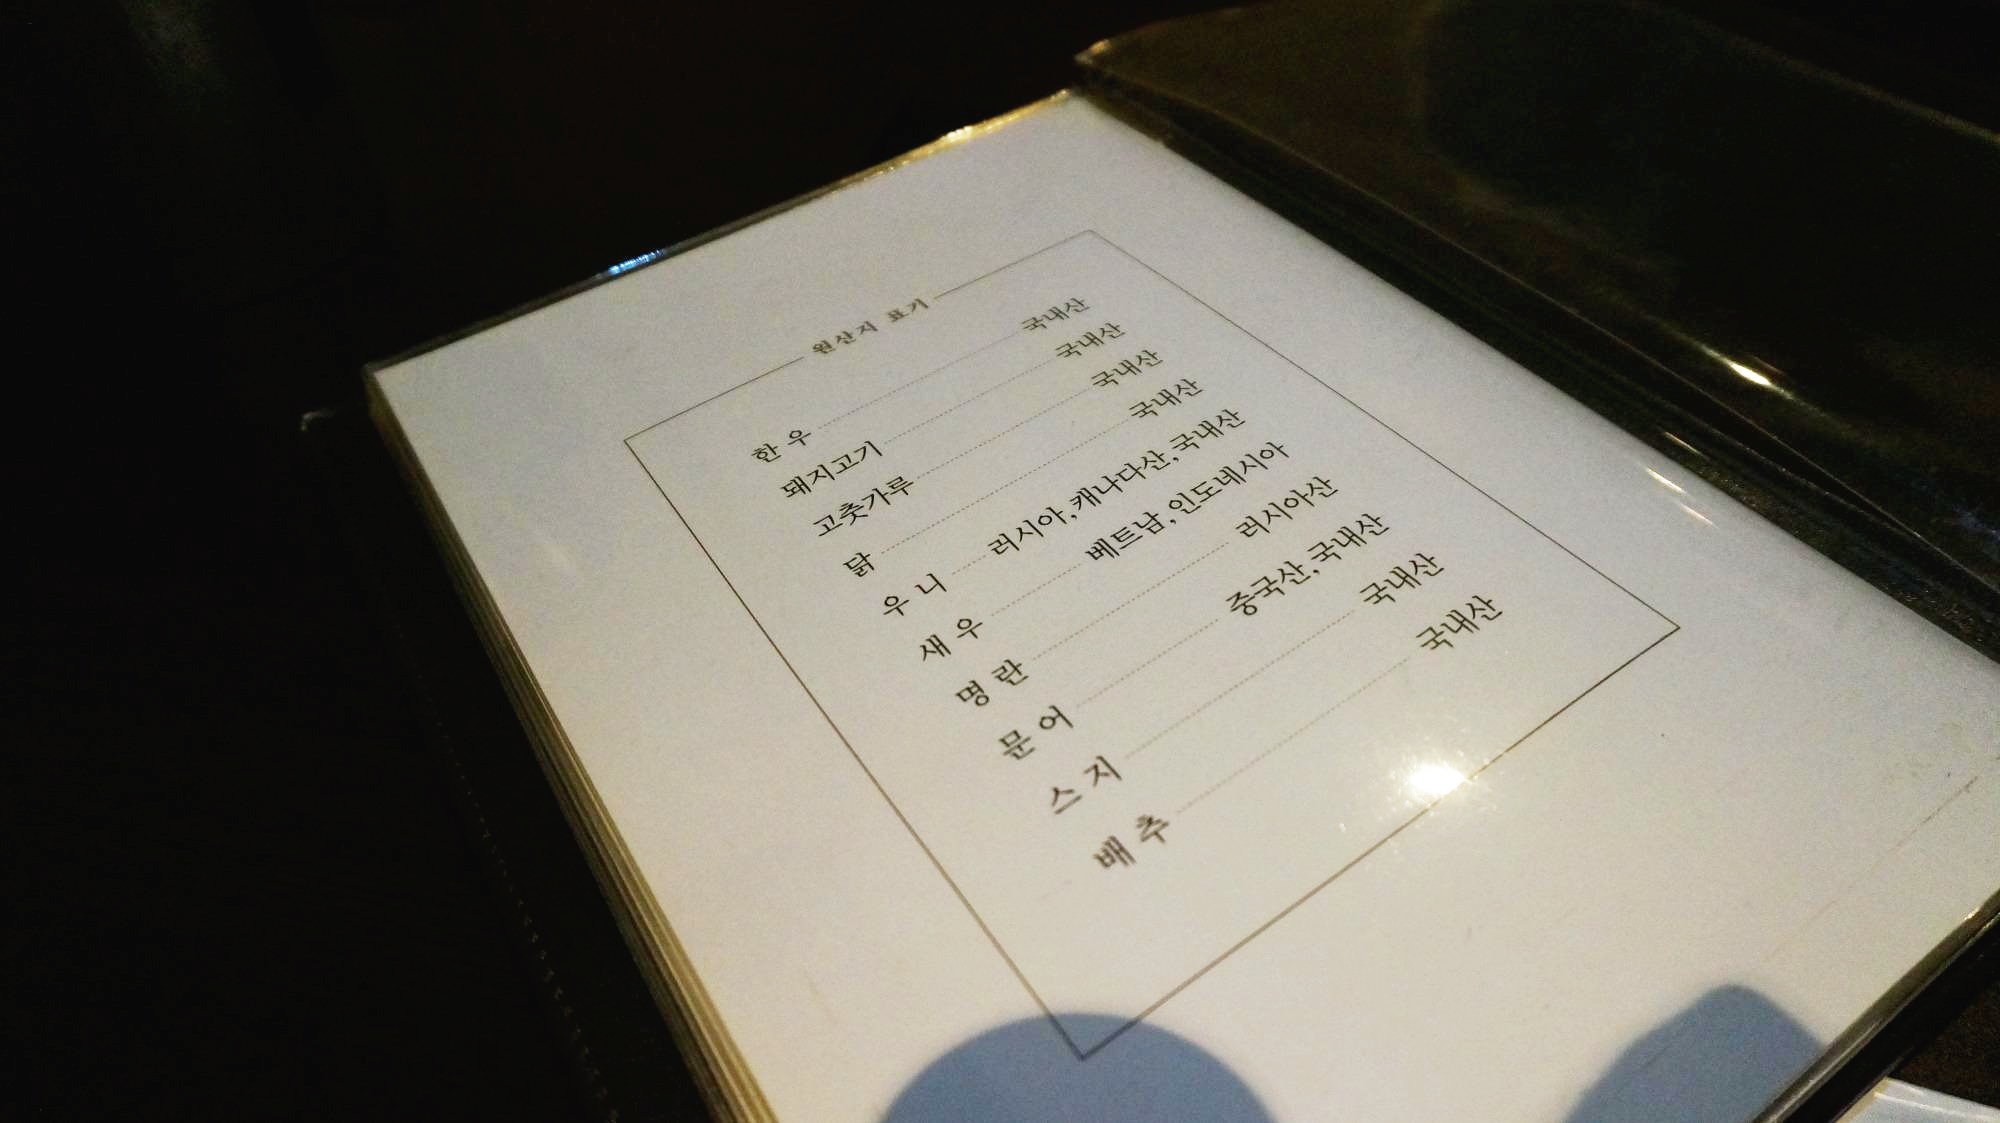 원산지 표기
한우 국내산
돼지고기 국내산
고춧가루 국내산
닭 국내산
우니 러시아,캐나다산,국내산
새우 베트남,인도네시아
명란 러시아산
문어 중국산,국내산
스지 국내산
배추 국내산